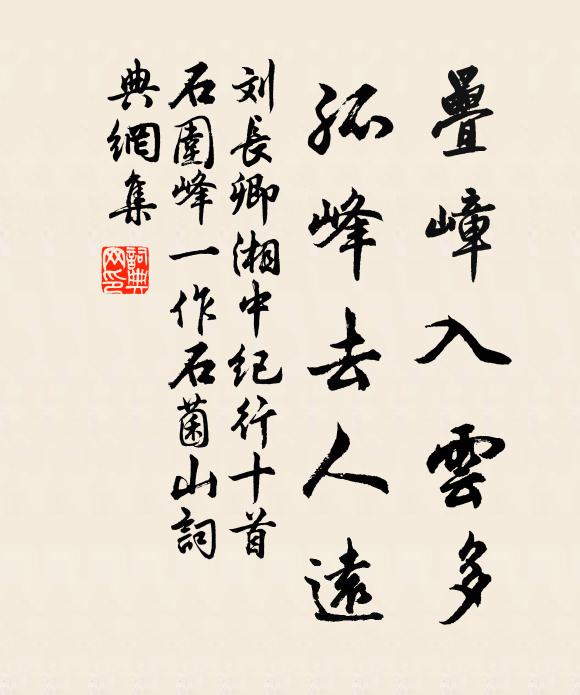 疊嶂入雲多
孤峰去人遠
刘長卿湘中纪行十首
石圍峰一作石菌山詞
典網集
詞典
网印